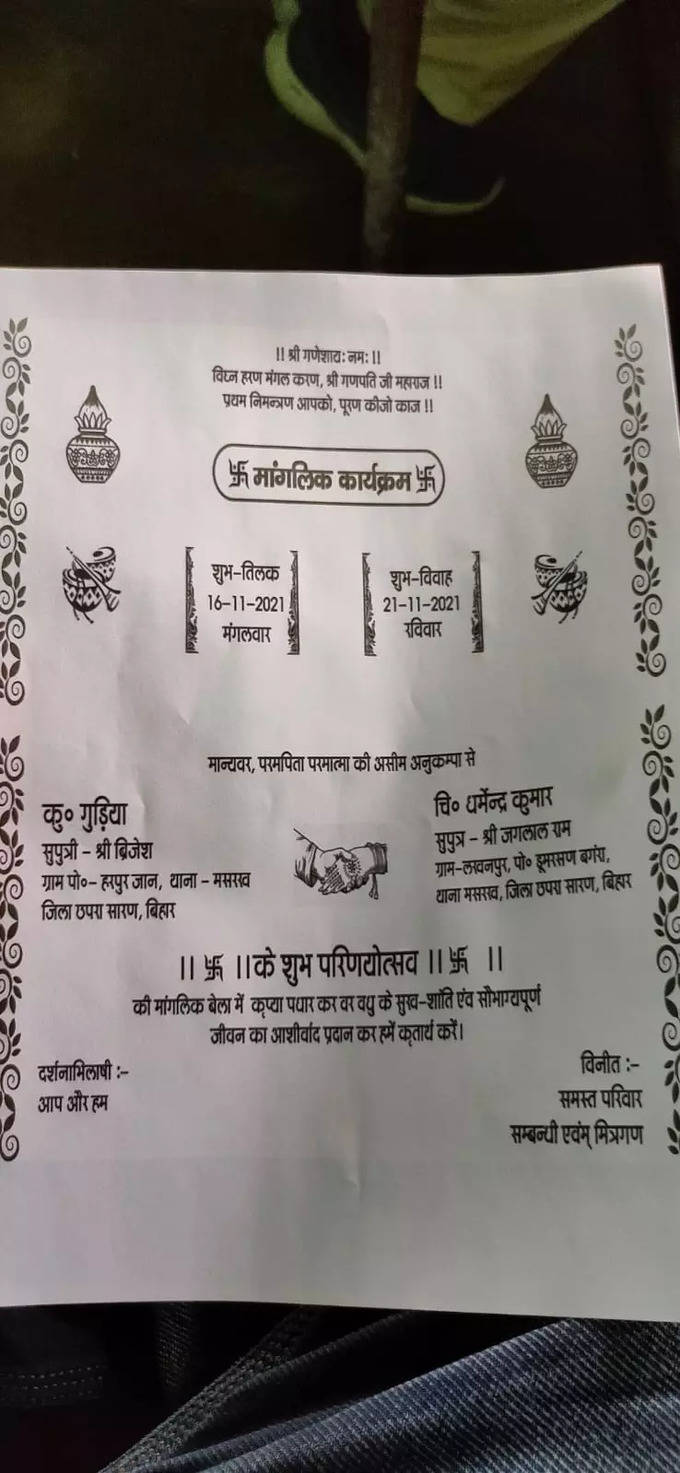 !! श्री गणेशाय: नम: !!
विघ्न हरण मंगल करण, श्री गणपति जी महाराज !!
प्रथम निमन्त्रण आपको, पूरण कीजो काज !!
卐 मांगलिक कार्यक्रम 卐
शुभ-तिलक
16-11-2021
मंगलवार
शुभ-विवाह
21-11-2021
रविवार
मान्यवर, परमपिता परमात्मा की असीम अनुकम्पा से
कु० गुड़िया
सुपुत्री - श्री ब्रिजेश
ग्राम पो०- हरपुर जान, थाना - मसरख
जिला छपरा सारण, बिहार
चि० धर्मेन्द्र कुमार
सुपुत्र - श्री जगलाल राम
ग्राम-लावनपुर, पो० डूमरसण बगंरा,
थाना मसरख, जिला छपरा सारण, बिहार
।। 卐 ।।के शुभ परिणयोत्सव ।। 卐 ।।
की मांगलिक बेला में कृप्या पधार कर वर वधु के सुख-शांति एंव सौभाग्यपूर्ण
जीवन का आशीर्वाद प्रदान कर हमें कृतार्थ करें।
दर्शनाभिलाषी :-
आप और हम
विनीत :-
समस्त परिवार
सम्बन्धी एवंम् मित्रगण